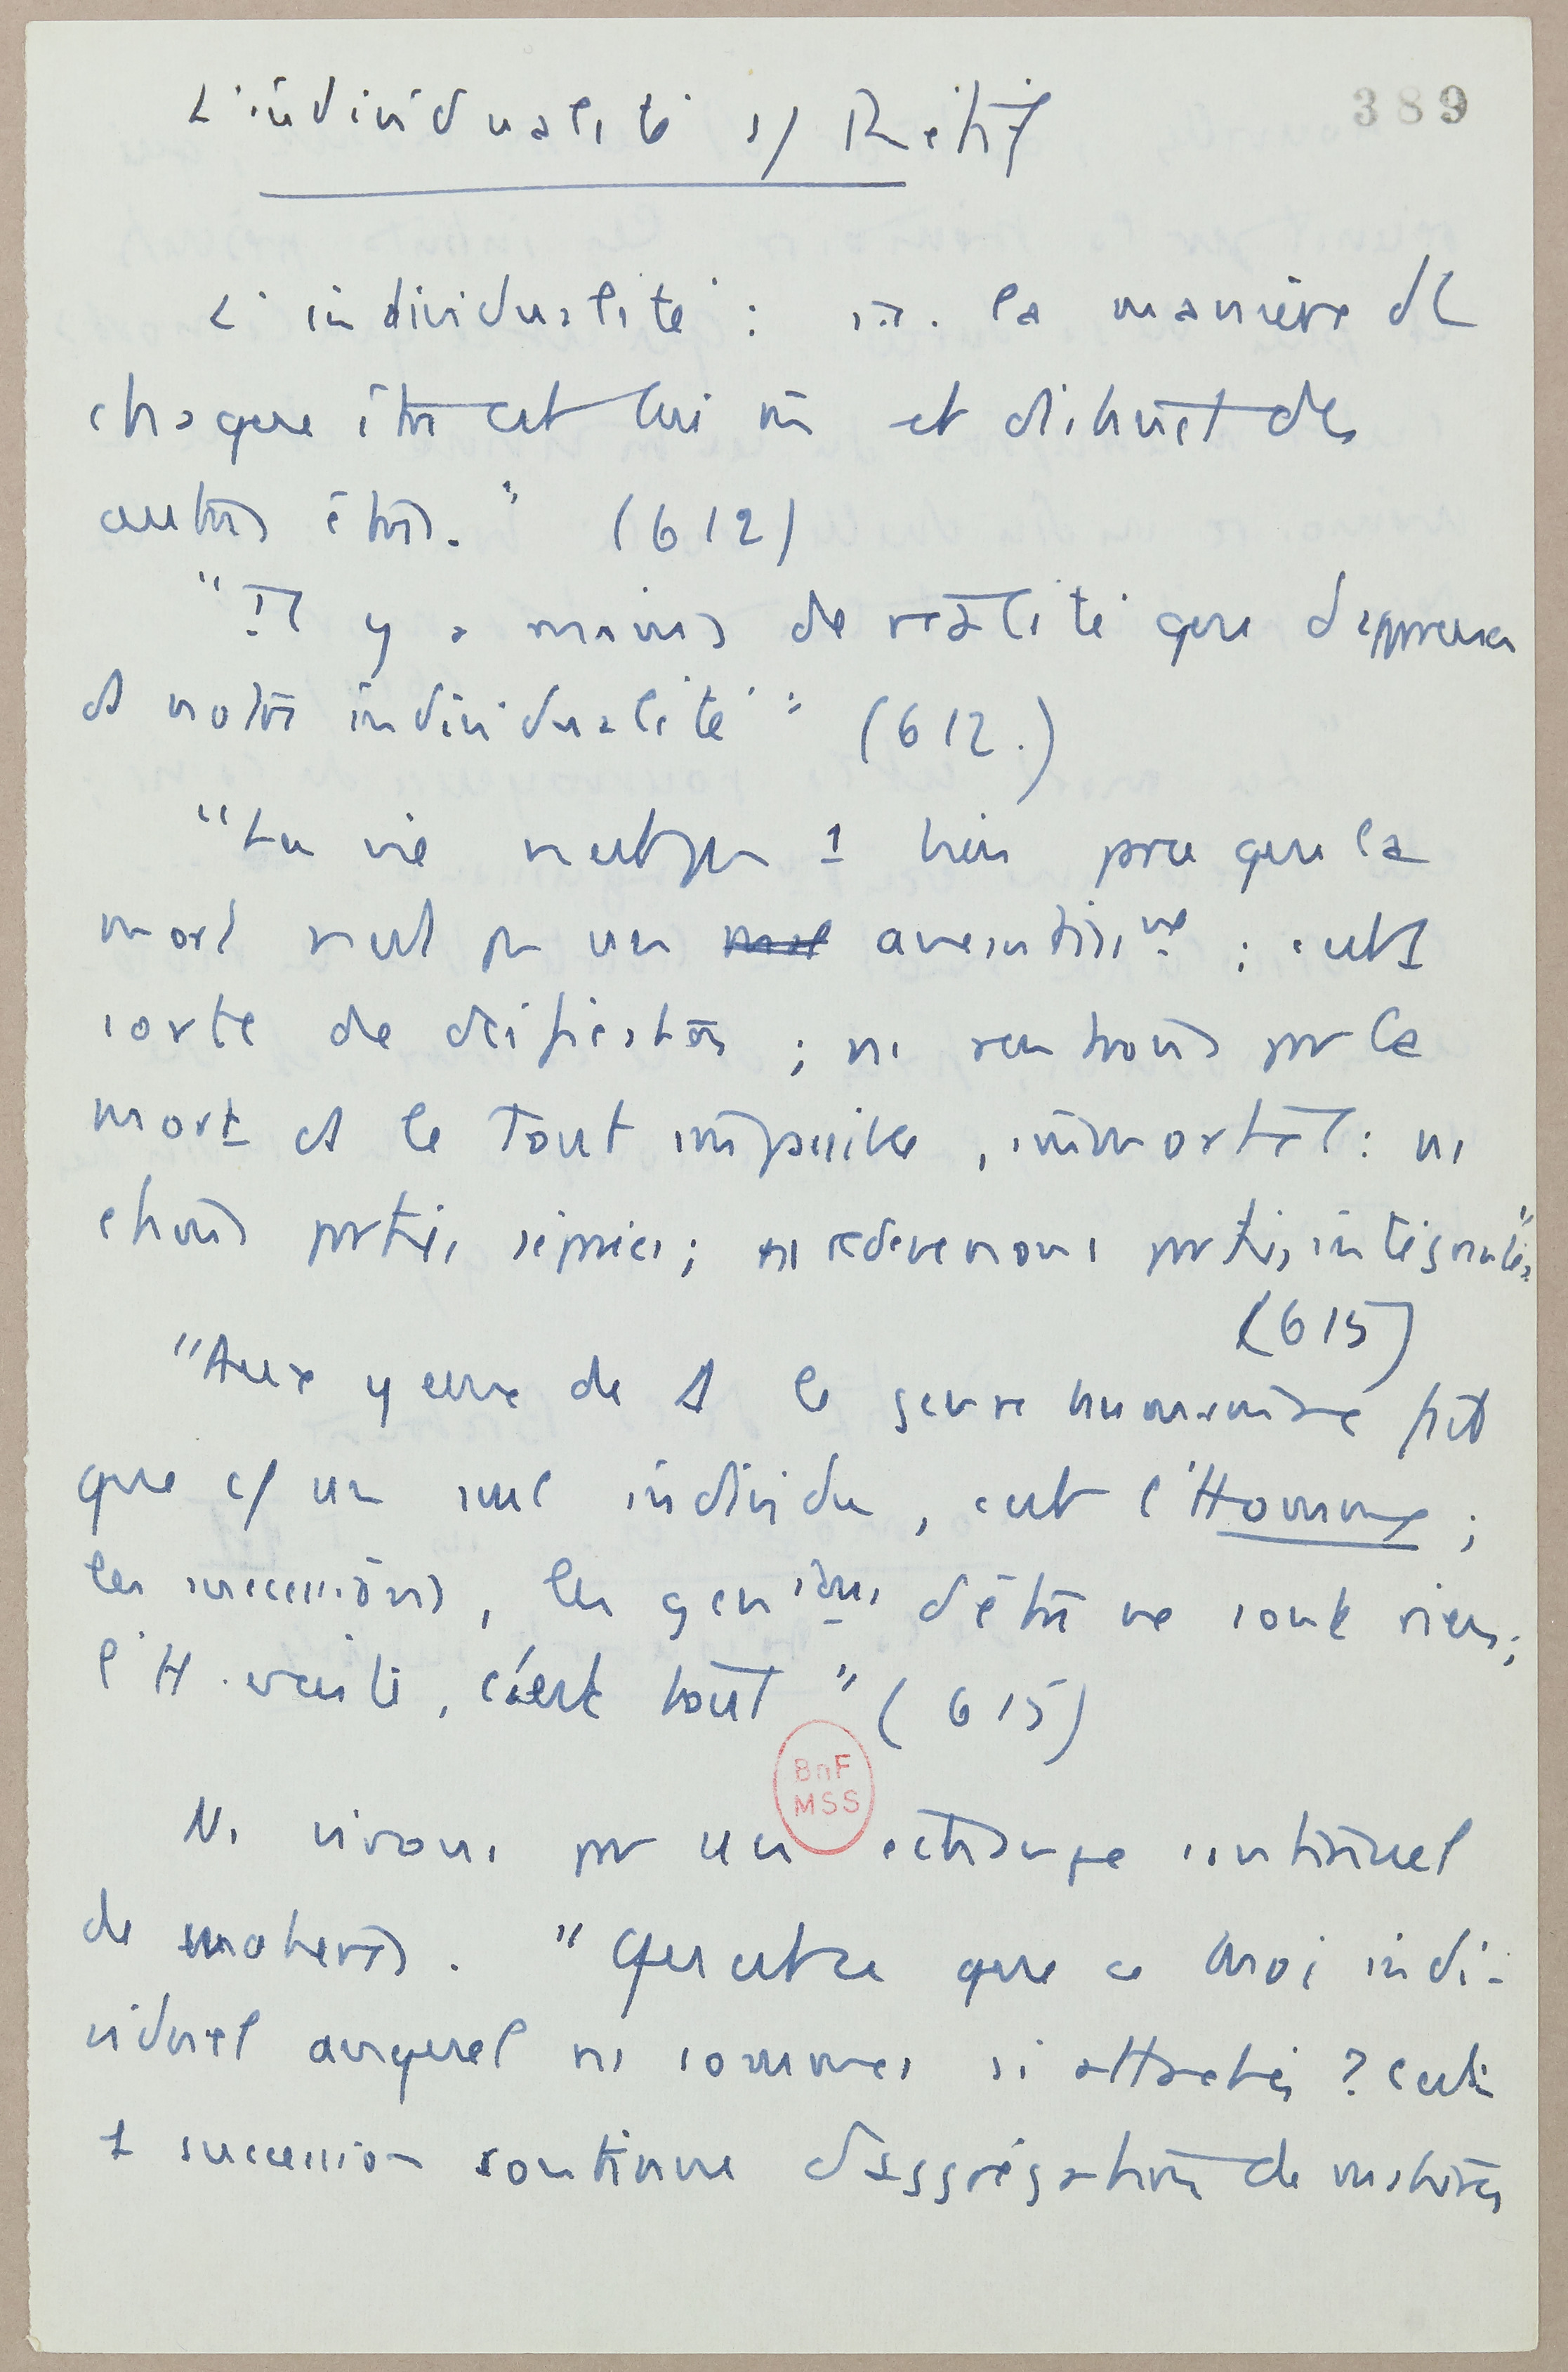 389
L'individualité s/ Rétif
L'individualité : i.e. la manière dt
chaque être est lui m et distinct des
autres êtres." (612)
"Il y a moins de réalité que d'apparence
ds notre individualité" (612.)
"La vie n'est pas 1 bien parce que la
mort n'est pas un mal anéantissnt ; c'est 1
sorte de déification ; ns rentrons par la
mort ds le Tout impassible, immortel : ns
étions parties séparées ; ns redevenons parties intégrantes"
(615)
"Aux yeux de la le genre humain n'est
que c/ un seul individu, c'est l'Homme ;
les successions, les générations d'être ne sont rien ;
l'H. existe, c'est tout" (615)
BnF
MSS
Ns vivons par un échange continuel
de matières. "Qu'est-ce que ce moi indi-
viduel auquel ns sommes si attachés ? C'est
1 succession continue d'aggrégation de matières